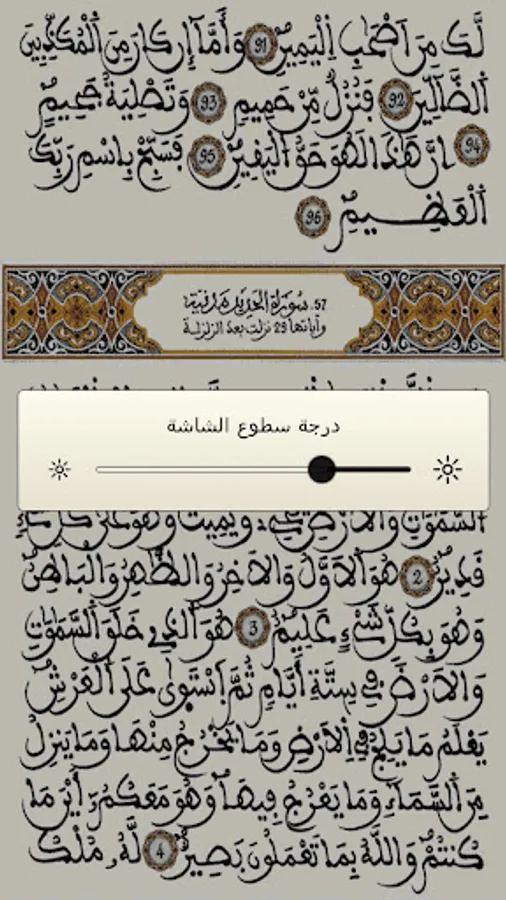 لَّكَ مِنَ اَصْحَٰبِ اِ۬لْيَمِينِۖ 91 وَأَمَّآ إِن كَانَ مِنَ اَ۬لْمُكَذِّبِينَ
اَ۬لضَّآلِّينَ 92 فَنُزُلٞ مِّنْ حَمِيمٖ 93 وَتَصْلِيَةُ جَحِيمٍۖ
94 اِنَّ هَٰذَا لَهُوَ حَقُّ اُ۬لْيَقِينِۖ 95 فَسَبِّحْ بِاسْمِ رَبِّكَ
اَ۬لْعَظِيمِۖ 96
57. سُورَةُ الْحَدِيدِ مَدَنِيَّة
وآياتها 29 نزلت بعد الزلزلة
درجة سطوع الشاشة
اُ۬لسَّمَٰوَٰتِ وَالَارْضِ يُحْيِۦ وَيُمِيتُ وَهُوَ عَلَىٰ كُلِّ شَےْءٖ
قَدِيرٌۖ 2 هُوَ اَ۬لَاوَّلُ وَالَاخِرُ وَالظَّٰهِرُ وَالْبَاطِنُ
وَهُوَ بِكُلِّ شَےْءٍ عَلِيمٌۖ 3 هُوَ اَ۬لذِے خَلَقَ اَ۬لسَّمَٰوَٰتِ
وَالَارْضَ فِے سِتَّةِ أَيَّامٖ ثُمَّ اَ۪سْتَوٰىٰ عَلَى اَ۬لْعَرْشِۖ
يَعْلَمُ مَا يَلِجُ فِے اِ۬لَارْضِ وَمَا يَخْرُجُ مِنْهَا وَمَا يَنزِلُ
مِنَ اَ۬لسَّمَآءِ وَمَا يَعْرُجُ فِيهَاۖ وَهُوَ مَعَكُمُۥٓ أَيْنَ مَا
كُنتُمْۖ وَاللَّهُ بِمَا تَعْمَلُونَ بَصِيرٞۖ 4 لَّهُۥ مُلْكُ